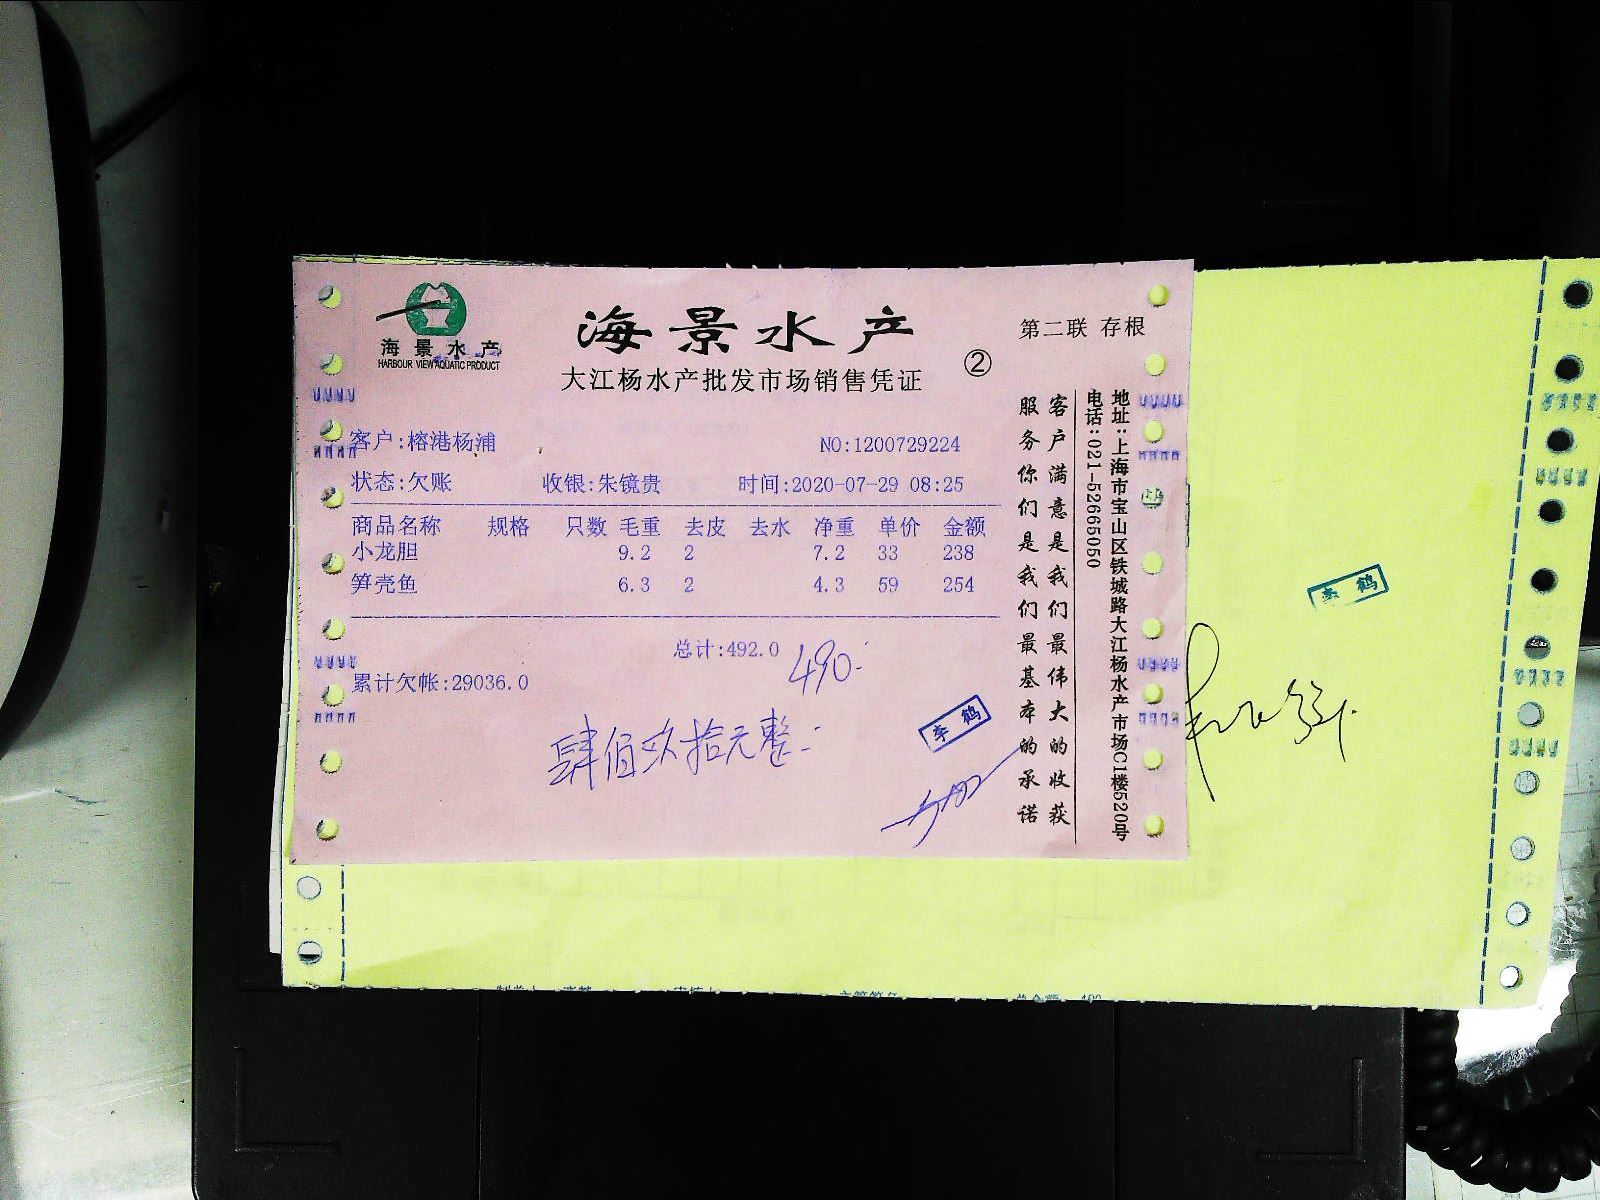 海景水产
HARBOUR VIEW AQUATIC PRODUCT
海景水产
大江杨水产批发市场销售凭证
②
第二联 存根
客户:榕港杨浦
NO:1200729224
状态:欠账 收银:朱镜贵 时间:2020-07-29 08:25
商品名称 规格 只数 毛重 去皮 去水 净重 单价 金额
小龙胆 9.2 2 7.2 33 238
笋壳鱼 6.3 2 4.3 59 254
总计:492.0
490.-
累计欠帐:29036.0
肆佰玖拾元整
李鹤
客户满意是我们最伟大的收获
服务你们是我们最基本的承诺
地址:上海市宝山区铁城路大江杨水产市场C1楼520号
电话:021-52665050
李鹤